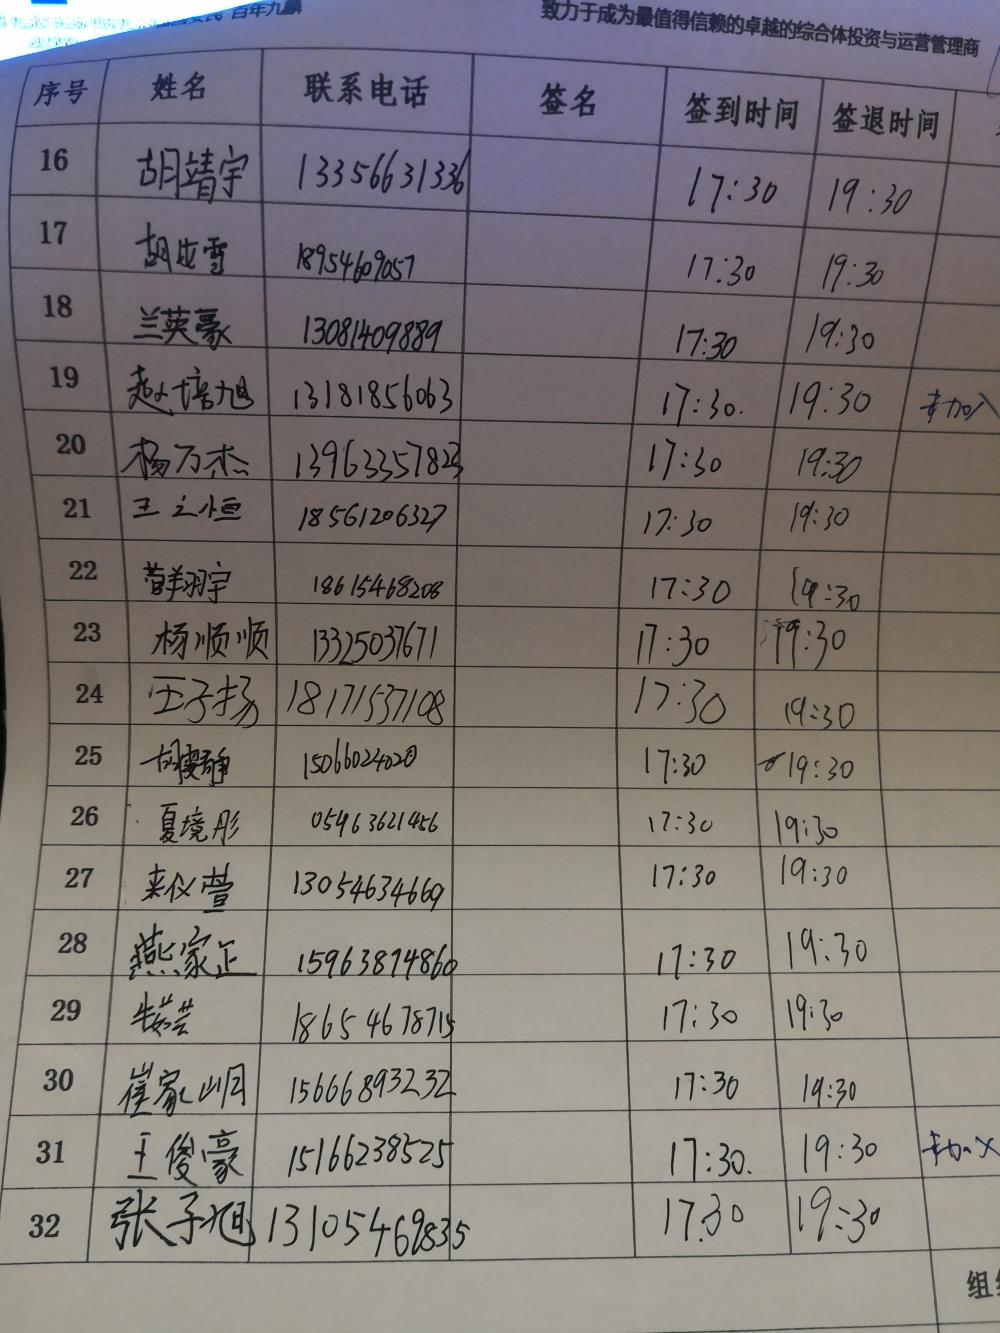 百年九麟
致力于成为最值得信赖的卓越的综合体投资与运营管理商
序号 姓名 联系电话 签名 签到时间 签退时间
16 胡靖宇 13356631336 17:30 19:30
17 胡雪 18954609057 17:30 19:30
18 兰英豪 13081409889 17:30 19:30
19 赵培旭 13181856063 17:30. 19:30 未加入
20 杨万杰 13963357823 17:30 19:30
21 王之恒 18561206327 17:30 19:30
22 翔宇 18615468208 17:30 19:30
23 杨顺顺 13325037671 17:30 19:30
24 王子扬 18171537108 17:30 19:30
25 胡静 15066024020 17:30 19:30
26 夏境彤 05463621456 17:30 19:30
27 来仪萱 13054634669 17:30 19:30
28 燕家正 15963874860 17:30 19:30
29 18654678715 17:30 19:30
30 崔家明 15666893232 17:30 19:30
31 王俊豪 15166238525 17:30. 19:30 未加入
32 张子旭 13105469835 17:30 19:30
组